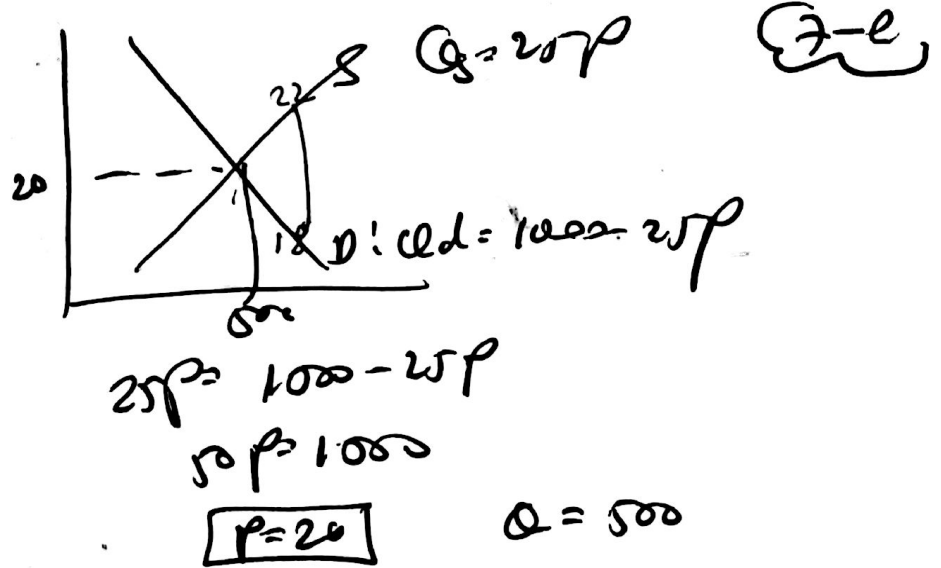 Qs = 25P
7-e
S
22
20
18
D: Qd = 1000 - 25P
500
25P = 1000 - 25P
50P = 1000
P = 20
Q = 500